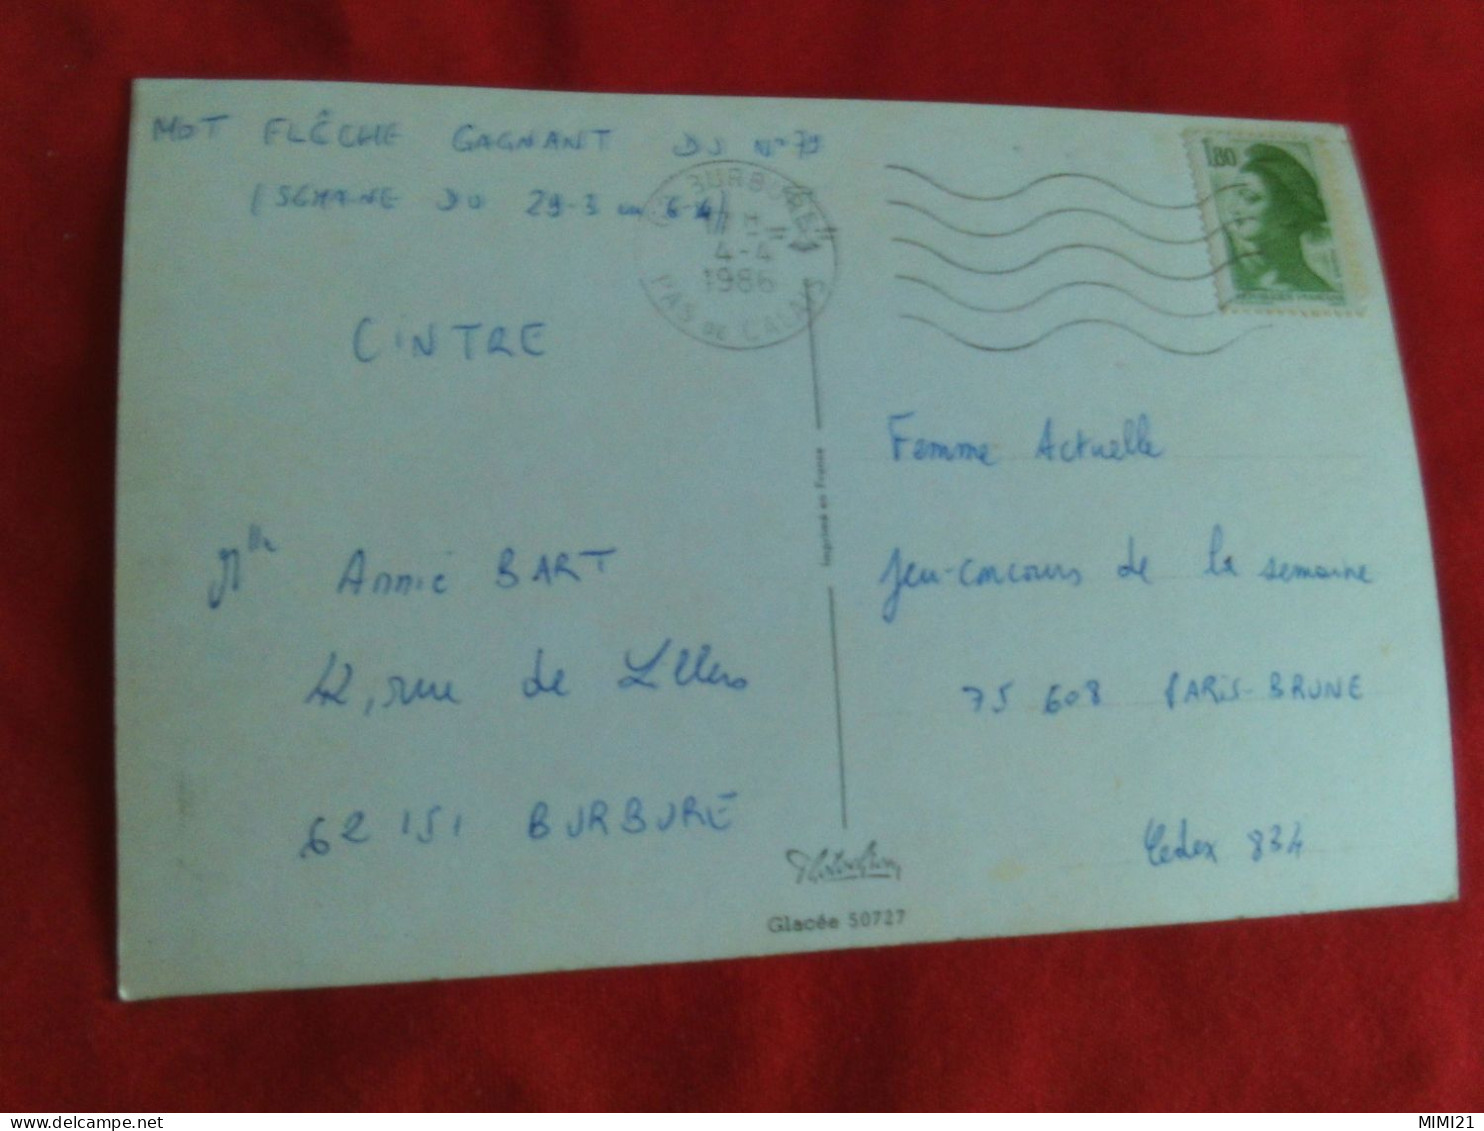 MOT FLÊCHE GAGNANT DU N° 79
(SEMAINE DU 29-3 au 6-4)
CINTRE
Mlle Annie BART
42, rue de Lillers
62 151 BURBURE
BURBURE
4-4
1986
PAS DE CALAIS
1,80
Femme Actuelle
Jeu-concours de la semaine
75 608 PARIS-BRUNE
Cedex 834
Imprimé en France
Glacée 50727
MIMI21